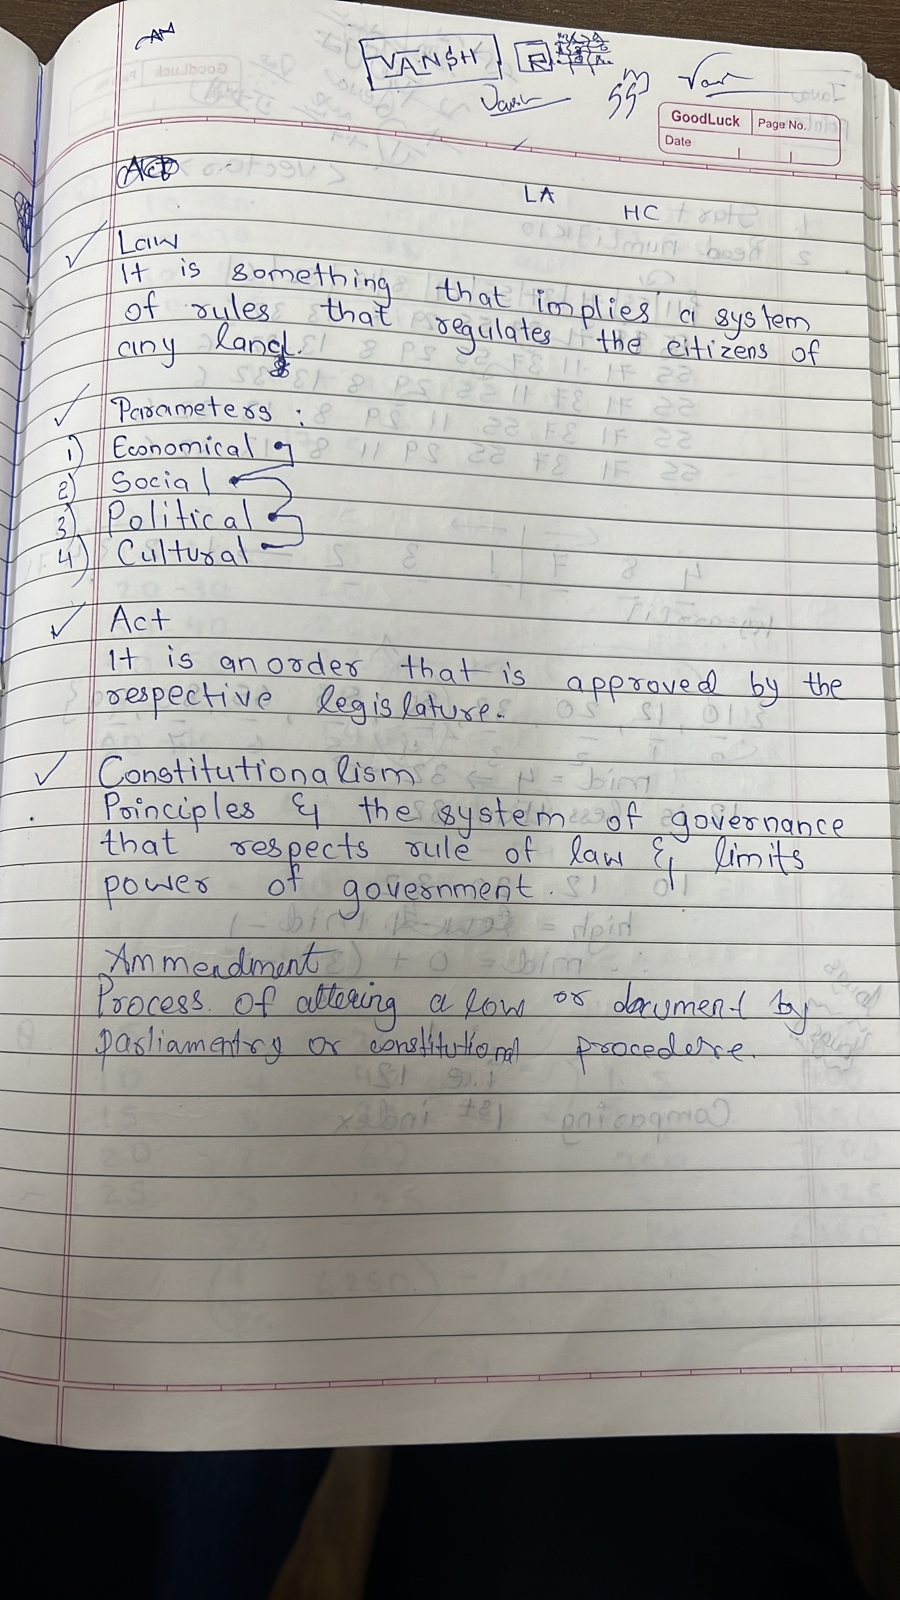 AN
VANSH R
Vansh
GoodLuck Page No.
Date
Act
LA
HC
Law
It is something that implies a system
of rules that regulates the citizens of
any land.
Parameters :
1) Economical
2) Social
3) Political
4) Cultural
Act
It is an order that is approved by the
respective legislature.
Constitutionalism
Principles & the system of governance
that respects rule of law & limits
power of government.
Ammendment
Process of altering a law or document by
parliamentry or constitutional procedure.